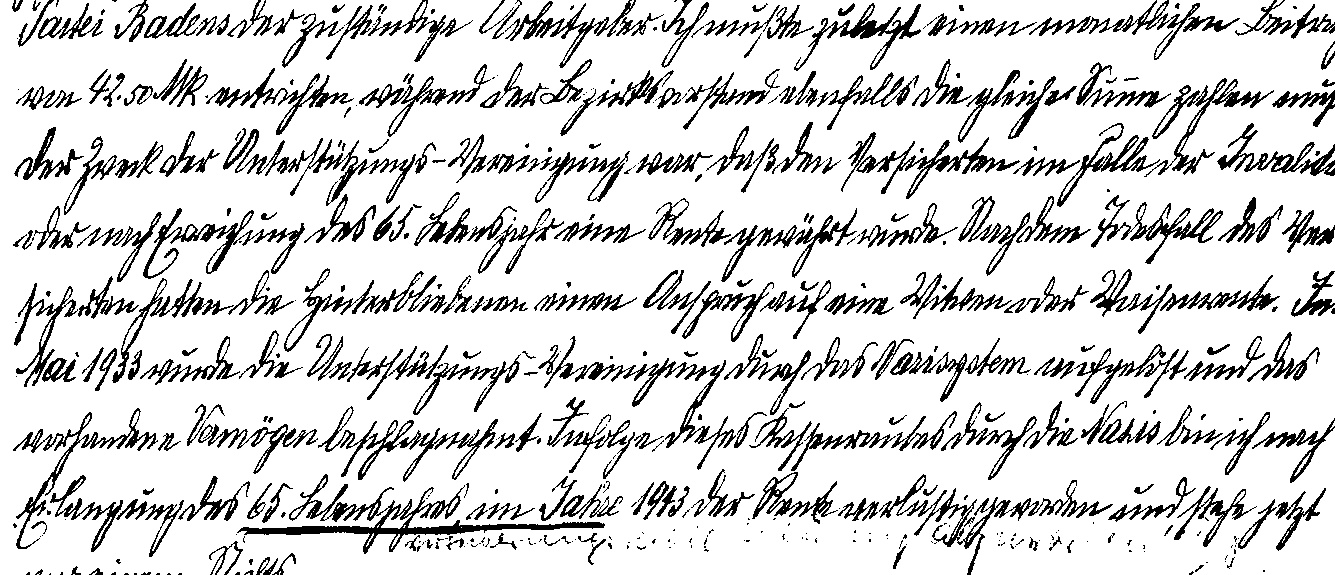 Partei Badens der zuständige Arbeitgeber. Ich mußte zuletzt einen monatlichen Beitra
von 42.50 Mk. entrichten, während der Bezirksvorstand ebenfalls die gleiche Summe zahlen muß
Der Zweck der Unterstützungs-Vereinigung war, daß den Versicherten im Falle der Invalidi
oder nach Erreichung des 65. Lebensjahr eine Rente gewährt wurde. Nach dem Todesfall des Ver
sicherten hatten die Hinterbliebenen einen Anspruch auf eine Witwen oder Waisenrente. Im
Mai 1933 wurde die Unterstützungs-Vereinigung durch das Nazisystem aufgelöst und das
vorhandene Vermögen beschlagnahmt. Infolge dieses Kassenraubes durch die Nazis bin ich nach
Erlangung des 65. Lebensjahres im Jahre 1943 der Rente verlustig geworden und stehe jetzt
vor einem Nichts